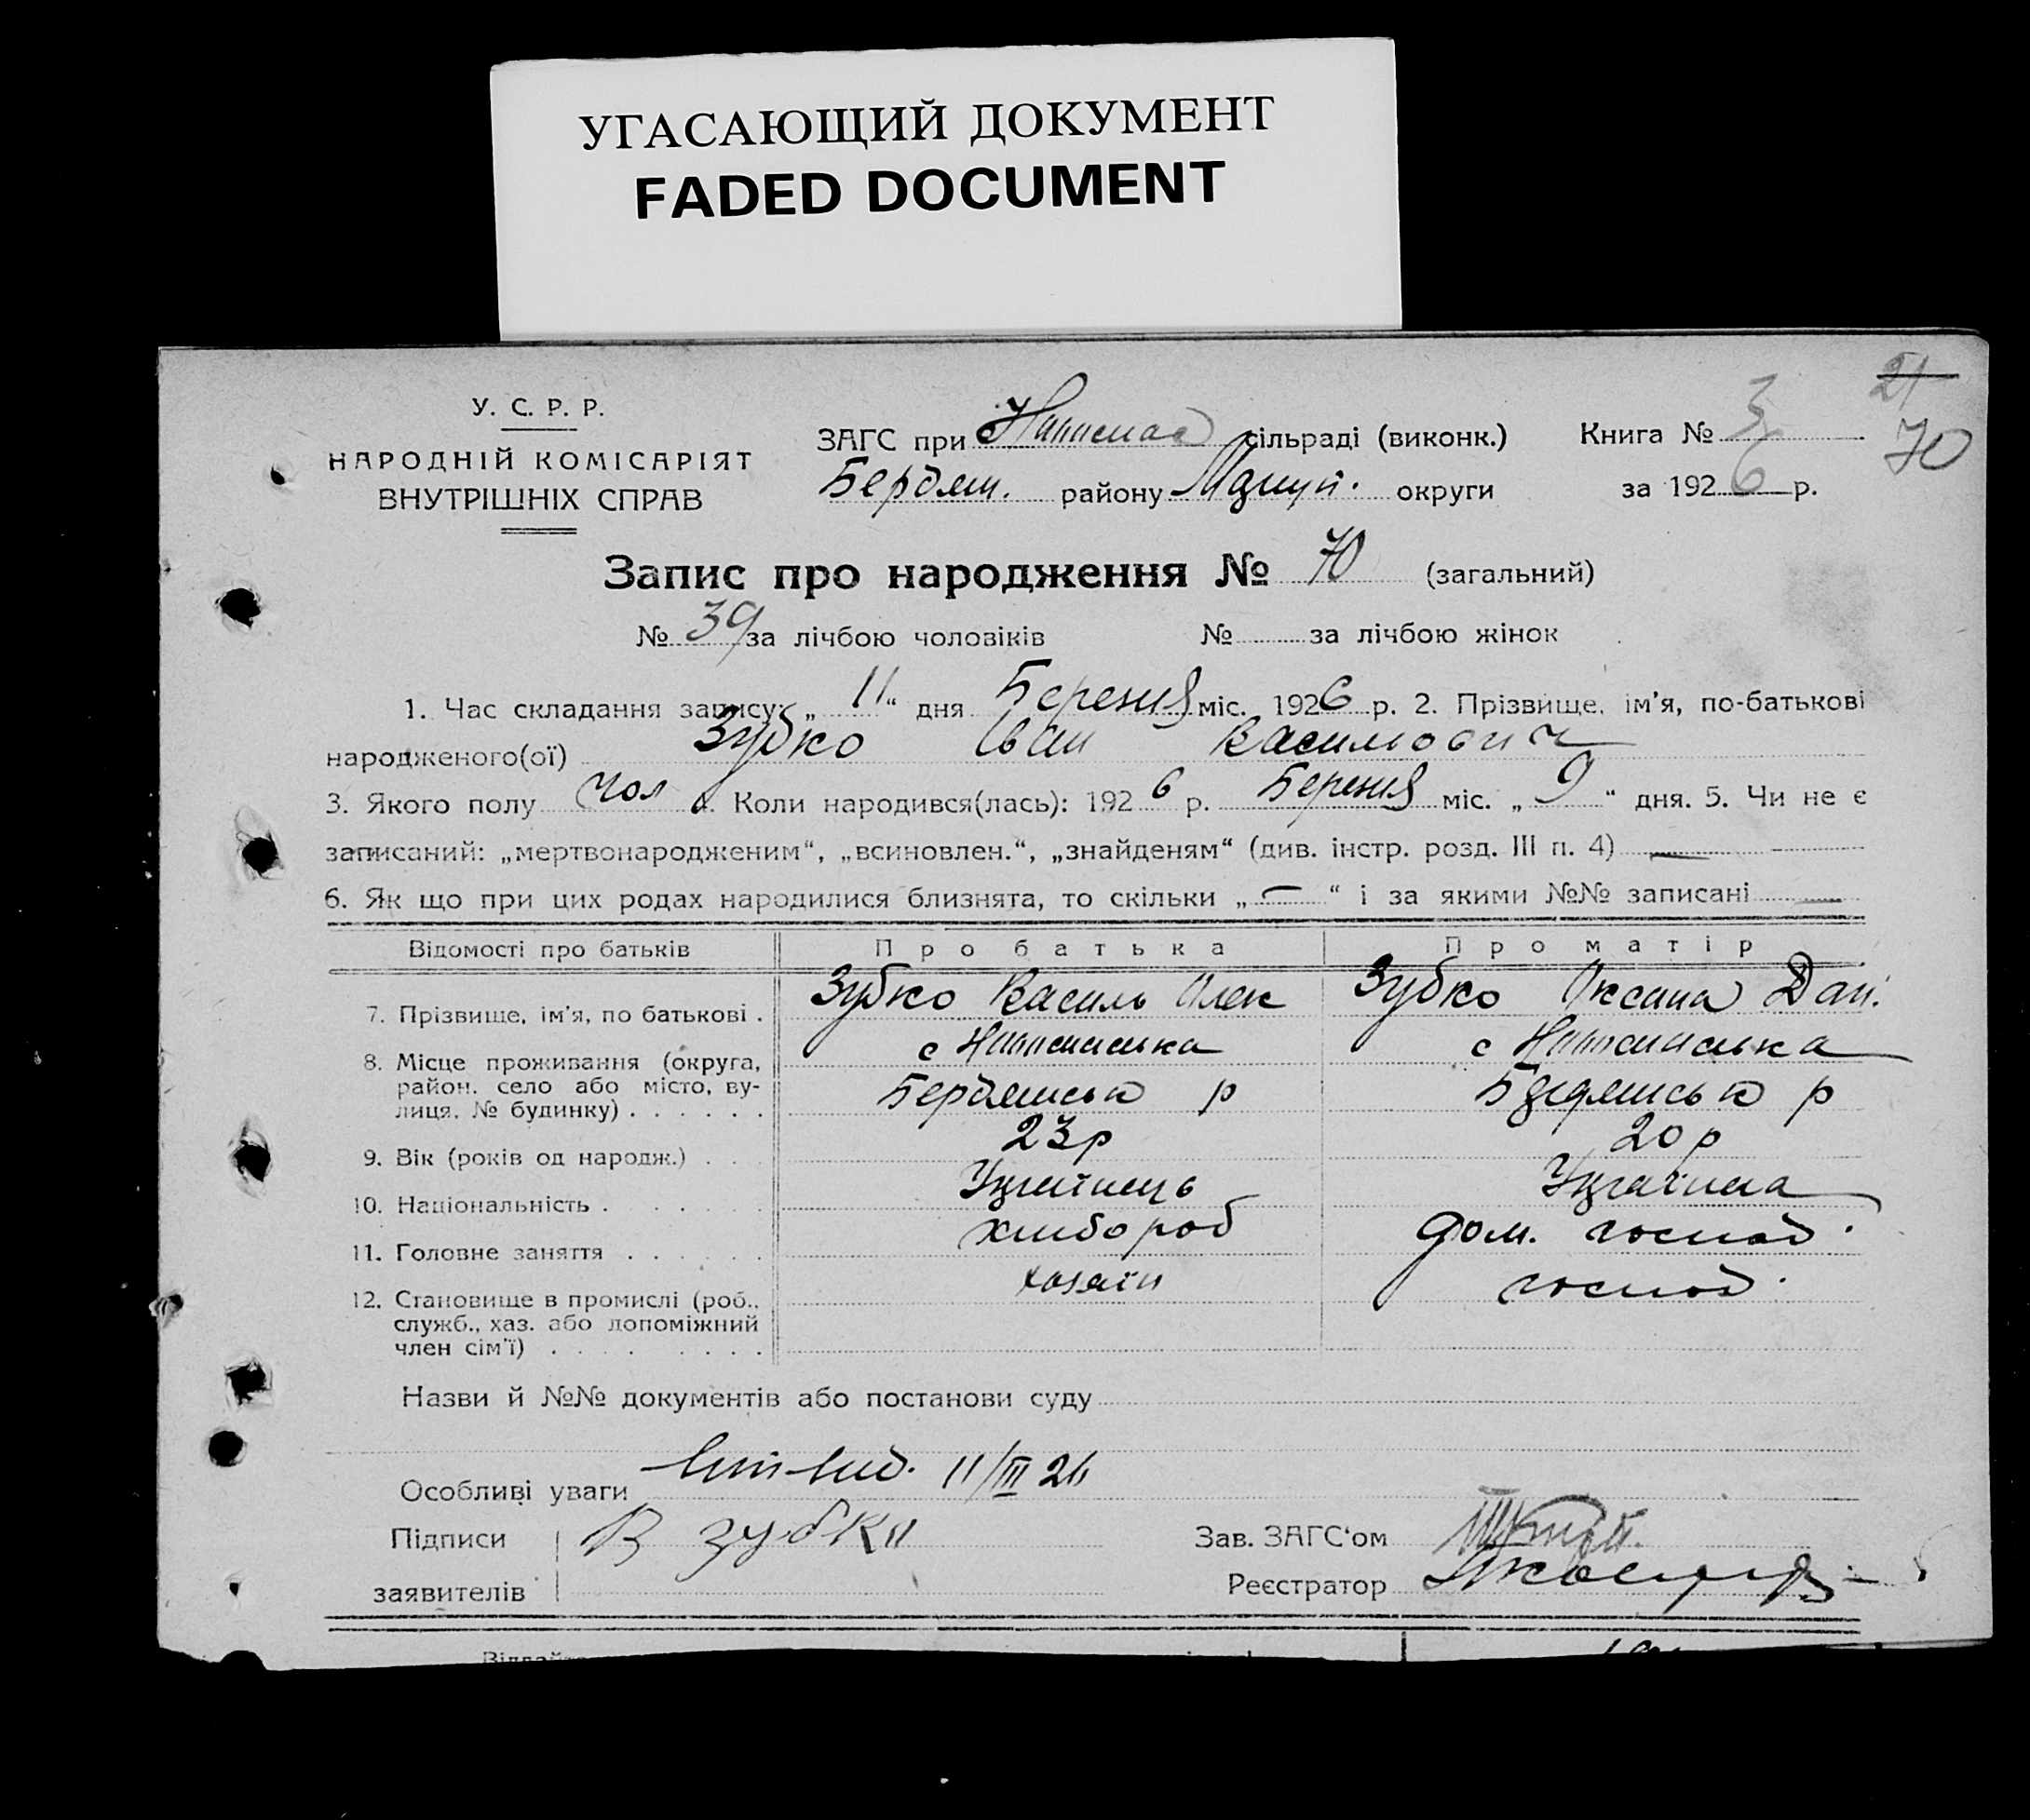 УГАСАЮЩИЙ ДОКУМЕНТ
FADED DOCUMENT
21
У. С. Р. Р.
НАРОДНІЙ КОМІСАРІЯТ
ВНУТРІШНІХ СПРАВ
ЗАГС при сільраді (виконк.) Книга № 3 70
Бердян. району Маріуп. округи за 1926 р.
Запис про народження № 70 (загальний)
№ 39 за лічбою чоловіків № за лічбою жінок
1. Час складання запису: „11“ дня Березня міс. 1926 р. 2. Прізвище, ім'я, по-батькові
народженого(ої) Зубко Іван Васильович
3. Якого полу чол 4. Коли народився(лась): 1926 р. Березня міс. „9“ дня. 5. Чи не є
записаний: „мертвонародженим“, „всиновлен.“, „знайденям“ (див. інстр. розд. III п. 4) —
6. Як що при цих родах народилися близнята, то скільки „—“ і за якими №№ записані —
Відомості про батьків Про батька Про матір
7. Прізвище, ім'я, по батькові . Зубко Василь Олек Зубко Оксана Дан.
8. Місце проживання (округа, район, село або місто, вулиця, № будинку) . . . . . . с с
Бердянськ р Бердянськ р
9. Вік (років од народж.) . . . 23р 20р
10. Національність . . . . . . Українець Українка
11. Головне заняття . . . . . . хлібороб дом. господ.
12. Становище в промислі (роб., служб., хаз. або допоміжний член сім'ї) . . . . . . . . хазяїн господ.
Назви й №№ документів або постанови суду
Особливі уваги 11/III 26
Підписи В зубко Зав. ЗАГС'ом
заявителів Реєстратор